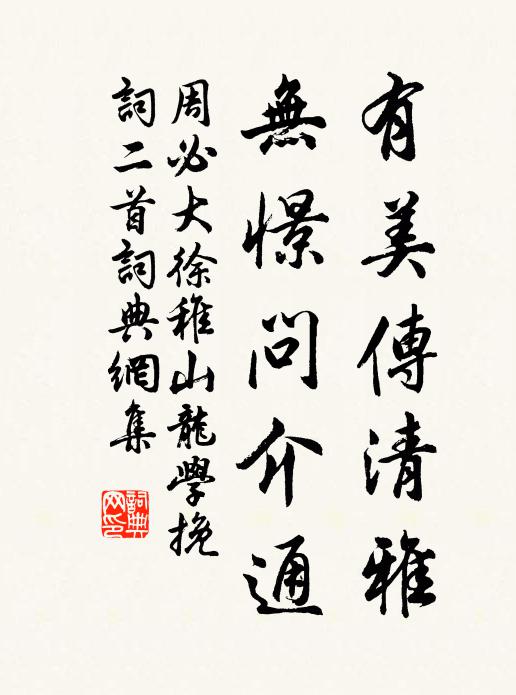 有美傳清雅
無憬問介通
周必大徐稚山龍學挽
詞二首詞典網集
詞典
网印